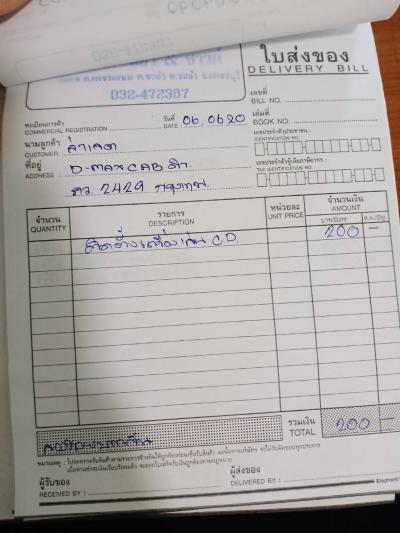 032-472387
ใบส่งของ
DELIVERY BILL
เลขที่
BILL NO.
ทะเบียนการค้า
COMMERCIAL REGISTRATION
วันที่ 06,06,20
DATE
เล่มที่
BOOK NO.
นามลูกค้า
CUSTOMER
เลขประจำตัวประชาชน :
IDENTIFICATION NO.
ที่อยู่ D-max CAB ดำ
ADDRESS :
เลขประจำตัวผู้เสียภาษีอากร :
TAX IDENTIFICATION NO.
2429 กรุงเทพ
จำนวน
QUANTITY
รายการ
DESCRIPTION
หน่วยละ
UNIT PRICE
จำนวนเงิน
AMOUNT
บาท/Baht ส.ต./Stg.
ติดตั้งเครื่องเล่น CD 200 -
รวมเงิน
TOTAL 200 -
หมายเหตุ : โปรดตรวจรับสินค้าตามรายการข้างต้นให้ถูกต้องก่อนเซ็นรับสินค้า
ผู้รับของ
RECEIVED BY :
ผู้ส่งของ
DELIVERED BY :
Elephant